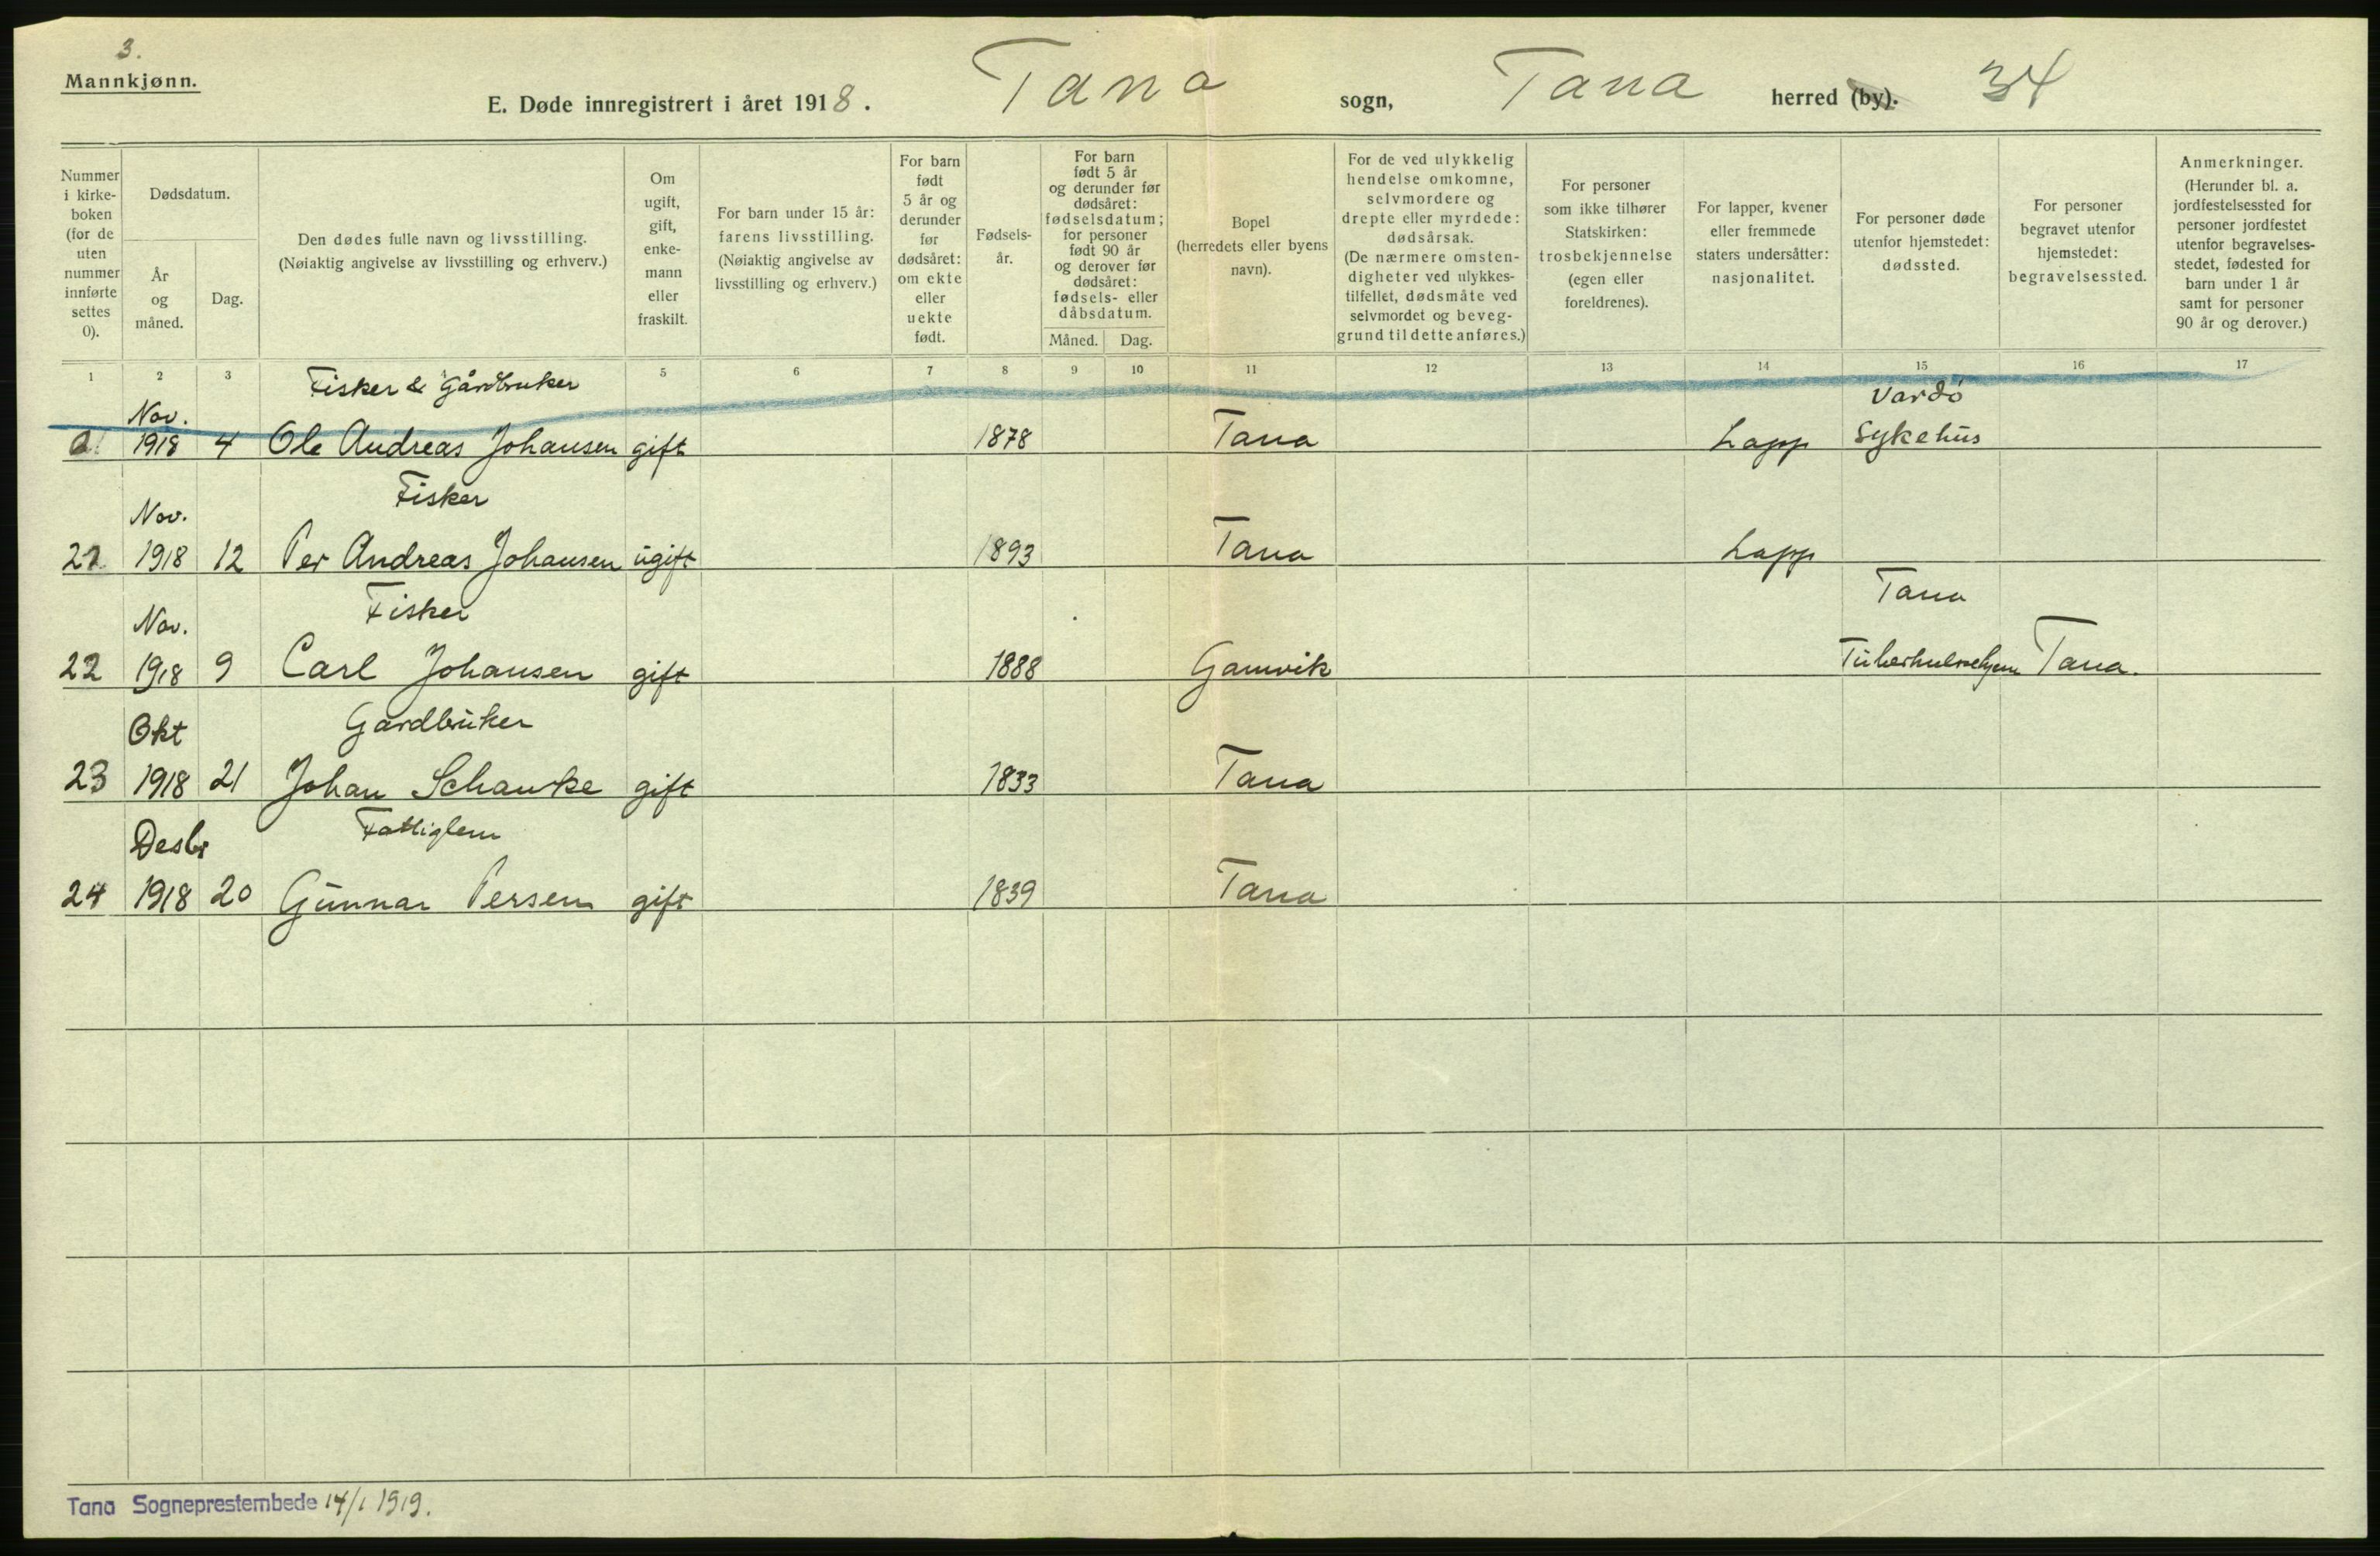 3.
Mannkjønn.
E. Døde innregistrert i året 1918. Tana sogn, Tana herred (by). 34
Nummer i kirke-boken (for de uten nummer innførte settes 0).
Dødsdatum.
År og måned.
Dag.
Den dødes fulle navn og livsstilling.
(Nøiaktig angivelse av livsstilling og erhverv.)
Om ugift, gift, enke-mann eller fraskilt.
For barn under 15 år: farens livsstilling.
(Nøiaktig angivelse av livsstilling og erhverv.)
For barn født 5 år og derunder før dødsåret: om ekte eller uekte født.
Fødsels-år.
For barn født 5 år og derunder før dødsåret: fødselsdatum; for personer født 90 år og derover før dødsåret: fødsels- eller dåbsdatum.
Måned. Dag.
Bopel (herredets eller byens navn).
For de ved ulykkelig hendelse omkomne, selvmordere og drepte eller myrdede: dødsårsak.
(De nærmere omsten-digheter ved ulykkes-tilfellet, dødsmåte ved selvmordet og beveg-grund til dette anføres.)
For personer som ikke tilhører Statskirken: trosbekjennelse (egen eller foreldrenes).
For lapper, kvener eller fremmede staters undersåtter: nasjonalitet.
For personer døde utenfor hjemstedet: dødssted.
For personer begravet utenfor hjemstedet: begravelsessted.
Anmerkninger.
(Herunder bl. a. jordfestelsessted for personer jordfestet utenfor begravelses-stedet, fødested for barn under 1 år samt for personer 90 år og derover.)
1 2 3 5 6 7 8 9 10 11 12 13 14 15 16 17
Fisker & Gårdbruker
Nov. Vardö
1918 4 Ole Andreas Johansen gift 1878 Tana Lapp Sykehus
Fisker
Nov.
1918 12 Per Andreas Johansen ugift 1893 Tana Lapp
Fisker Tana
Nov.
22 1918 9 Carl Johansen gift 1888 Gamvik Tuberkulosehjem Tana.
Okt Gardbruker
23 1918 21 Johan Schanke gift 1833 Tana
Desbr Fattiglem
24 1918 20 Gunnar Persen gift 1839 Tana
Tana Sogneprestembede 14/1 1919.